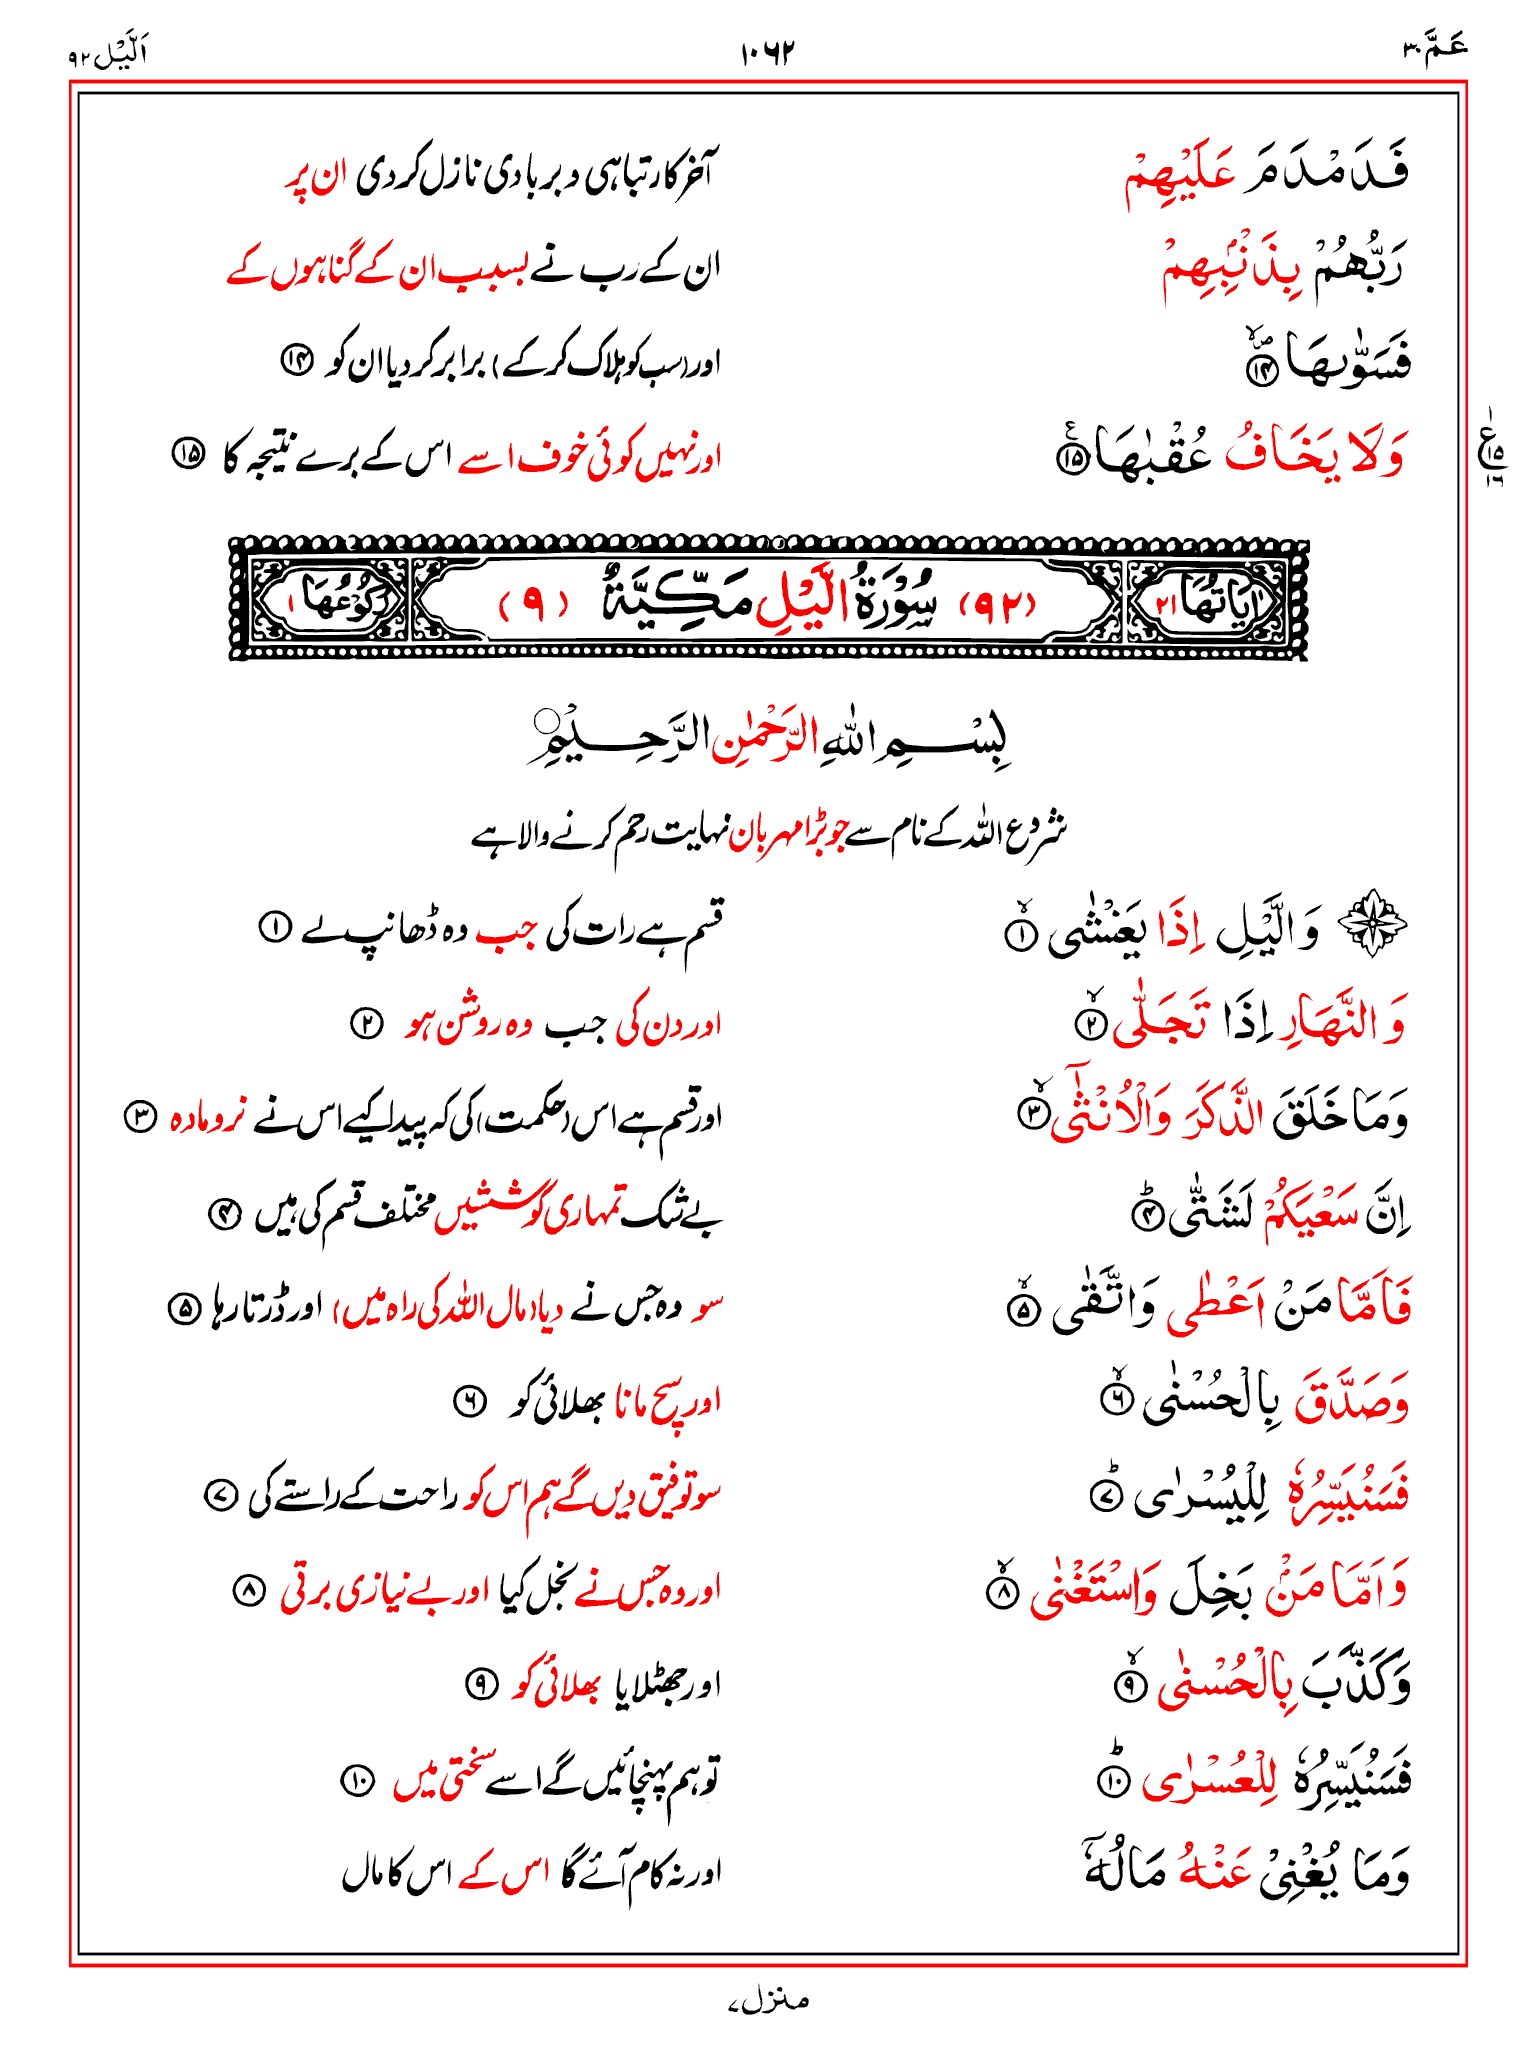 عَمَّ ۳۰ ۱۰۶۲ اَلَّيْل ۹۲
فَدَمْدَمَ عَلَيْهِمْ آخرکار تباہی و بربادی نازل کردی ان پر
رَبُّهُمْ بِذَنْۢبِهِمْ ان کے رب نے بسبب ان کے گناہوں کے
فَسَوّٰىهَا ۪ۙ ۱۴ اور (سب کو ہلاک کرکے) برابر کردیا ان کو ۱۴
وَلَا يَخَافُ عُقْبٰهَا ۧ ۱۵ اور نہیں کوئی خوف اسے اس کے برے نتیجہ کا ۱۵
۱ ع ۱۵ ۱۶
اٰيَاتُهَا ۲۱ (۹۲) سُوْرَةُ الَّيْلِ مَكِّيَّةٌ (۹) رُكُوْعُهَا ۱
بِسْمِ اللّٰهِ الرَّحْمٰنِ الرَّحِيْمِ ○
شروع اللہ کے نام سے جو بڑا مہربان نہایت رحم کرنے والا ہے
وَالَّيْلِ اِذَا يَغْشٰى ۙ ۱ قسم ہے رات کی جب وہ ڈھانپ لے ۱
وَالنَّهَارِ اِذَا تَجَلّٰى ۙ ۲ اور دن کی جب وہ روشن ہو ۲
وَمَا خَلَقَ الذَّكَرَ وَالْاُنْثٰٓى ۙ ۳ اور قسم ہے اس (حکمت) کی کہ پیدا کیے اس نے نر و مادہ ۳
اِنَّ سَعْيَكُمْ لَشَتّٰى ؕ ۴ بے شک تمہاری کوششیں مختلف قسم کی ہیں ۴
فَاَمَّا مَنْ اَعْطٰى وَاتَّقٰى ۙ ۵ سو وہ جس نے دیا (مال اللہ کی راہ میں) اور ڈرتا رہا ۵
وَصَدَّقَ بِالْحُسْنٰى ۙ ۶ اور سچ مانا بھلائی کو ۶
فَسَنُيَسِّرُهٗ لِلْيُسْرٰى ؕ ۷ سو توفیق دیں گے ہم اس کو راحت کے راستے کی ۷
وَاَمَّا مَنْۢ بَخِلَ وَاسْتَغْنٰى ۙ ۸ اور وہ جس نے بخل کیا اور بے نیازی برتی ۸
وَكَذَّبَ بِالْحُسْنٰى ۙ ۹ اور جھٹلایا بھلائی کو ۹
فَسَنُيَسِّرُهٗ لِلْعُسْرٰى ؕ ۱۰ تو ہم پہنچائیں گے اسے سختی میں ۱۰
وَمَا يُغْنِيْ عَنْهُ مَالُهٗۤ اور نہ کام آئے گا اس کے اس کا مال
منزل ۷